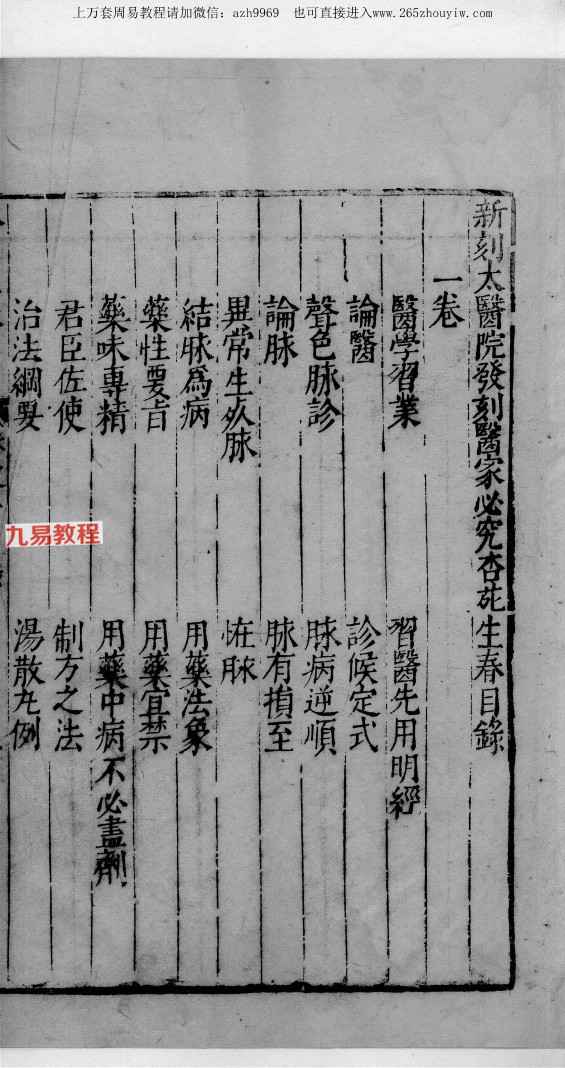 上万套周易教程请加微信：azh9969　也可直接进入www.265zhouyiw.com
新刻太醫院發刻醫家必究杏苑生春目錄
一卷
醫學習業　習醫先用明經
論醫　診候定式
聲色脉診　脉病逆順
論脉　脉有損至
異常生死脉　怪脉
結脉爲病　用藥法象
藥性要旨　用藥宜禁
藥味專精　用藥中病不必盡劑
君臣佐使　制方之法
治法綱要　湯散丸例
九易教程